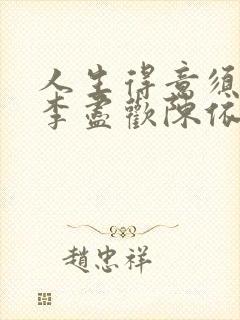 人生得意須
李盡歡陳依
趙忠祥